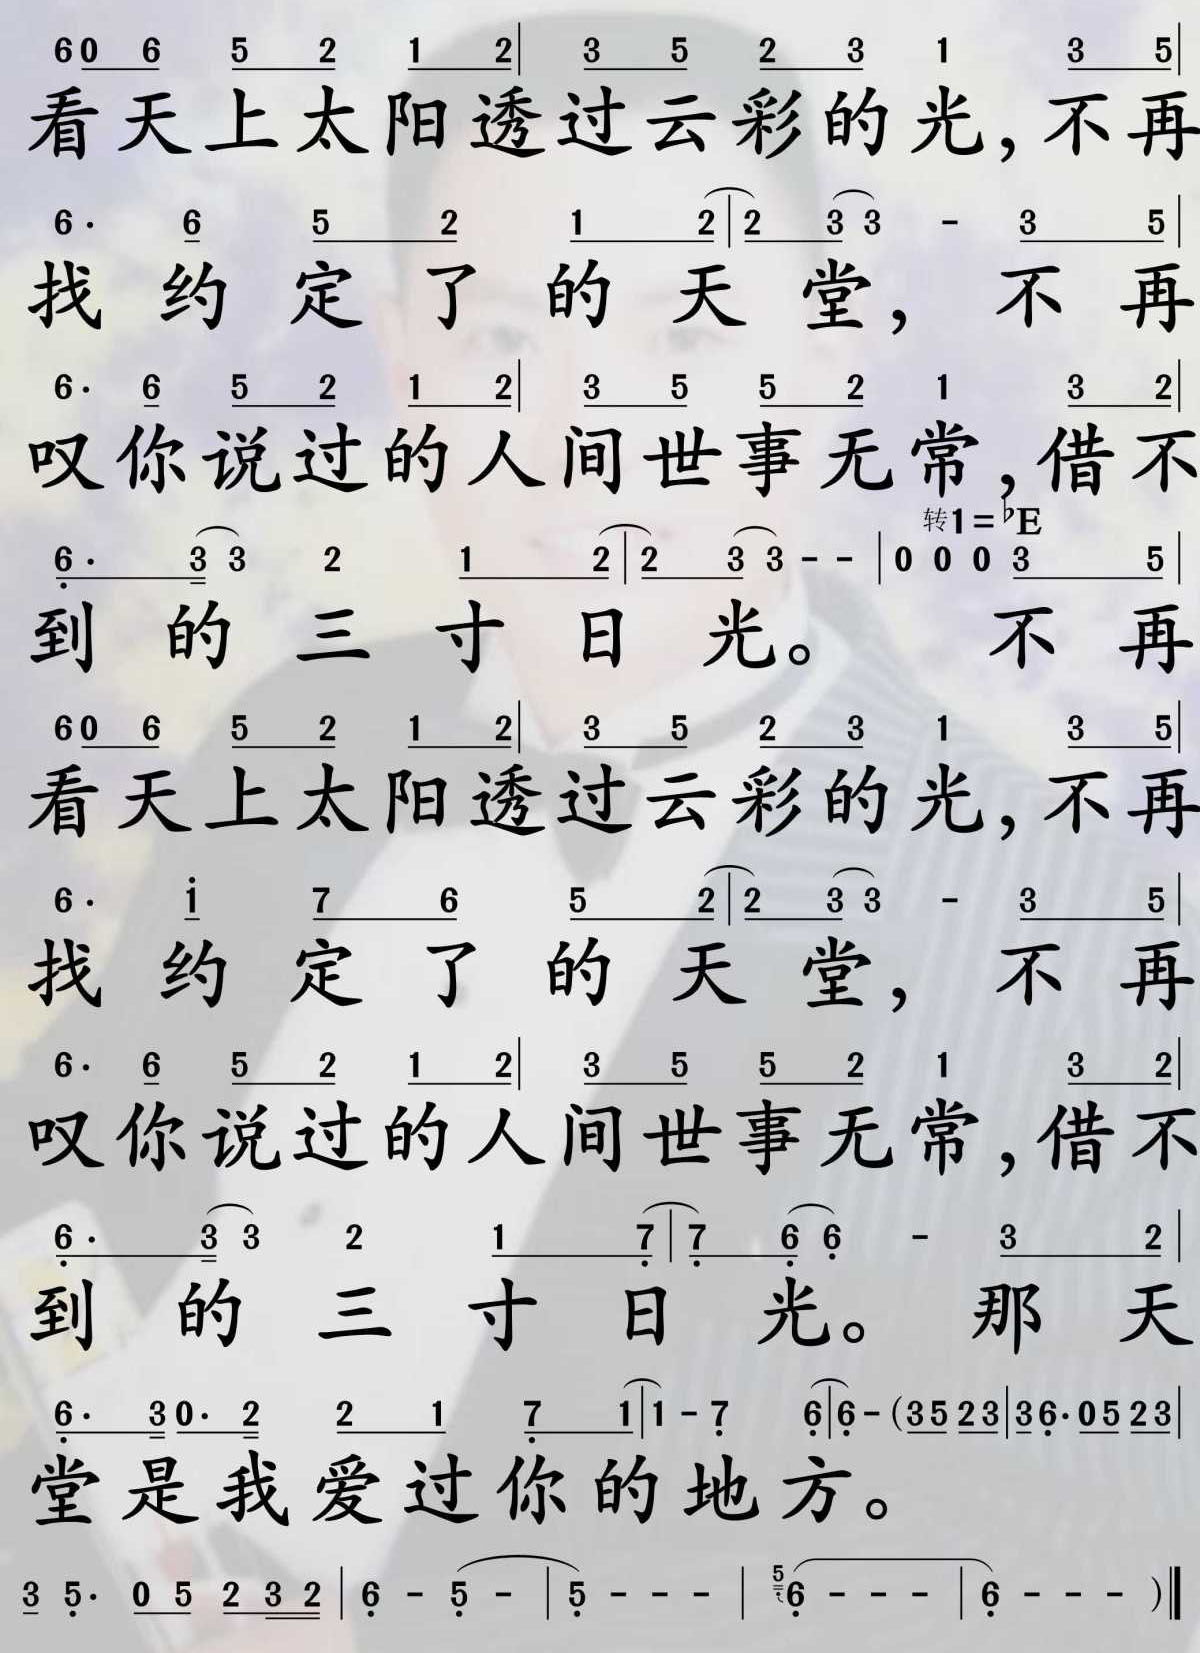 60 6 5 2 1 2 | 3 5 2 3 1 3 5 |
看天上太阳透过云彩的光,不再
6· 6 5 2 1 2 | 2 3 3 - 3 5 |
找约定了的天堂,不再
6· 6 5 2 1 2 | 3 5 5 2 1 3 2 |
叹你说过的人间世事无常,借不
转1=♭E
6̣· 3 3 2 1 2 | 2 3 3 - - | 0 0 0 3 5 |
到的三寸日光。不再
60 6 5 2 1 2 | 3 5 2 3 1 3 5 |
看天上太阳透过云彩的光,不再
6· 1̇ 7 6 5 2 | 2 3 3 - 3 5 |
找约定了的天堂,不再
6· 6 5 2 1 2 | 3 5 5 2 1 3 2 |
叹你说过的人间世事无常,借不
6̣· 3 3 2 1 7̣ | 7̣ 6̣ 6̣ - 3 2 |
到的三寸日光。那天
6̣· 3 0· 2 2 1 7̣ 1 | 1 - 7̣ 6̣ | 6̣ - (35 23 | 3 6̣· 05 23 |
堂是我爱过你的地方。
3 5̣· 0 5 2 3 2 | 6̣ - 5̣ - | 5̣ - - - | 5 6̣ - - - | 6̣ - - - )‖